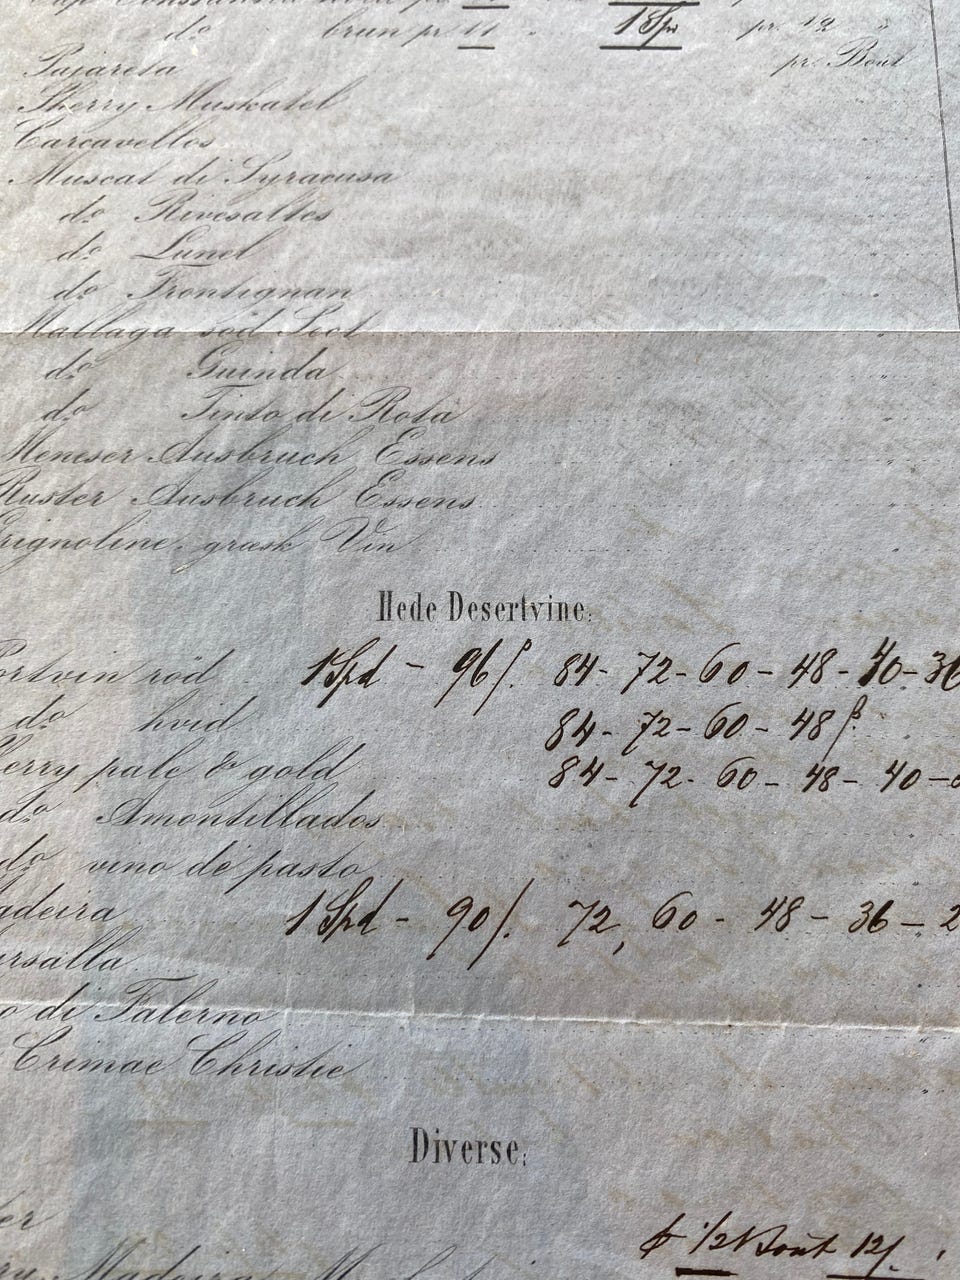 do brun pr. 11 " 1 Spd pr. 12 "
Pajareta pr. Bout
Sherry Muskatel
Carcavellos
Muscat di Syracusa
do Rivesaltes
do Lunel
do Frontignan
Mallaga söd Sect
do Guinda
do Tinto di Rota
Meneser Ausbruch Essens
Ruster Ausbruch Essens
rignoline, græsk Vin
Hede Desertvine;
ortvin röd 1 Spd - 96 ſ. 84 - 72 - 60 - 48 - 40 - 36
do hvid 84 - 72 - 60 - 48 ß.
herry pale & gold 84 - 72 - 60 - 48 - 40 -
do Amontillados
do vino de pasto
adeira 1 Spd - 90 ſ. 72, 60 - 48 - 36 - 2
rsalla
o di Falerno
Crimae Christie
Diverse;
er
ry, Madeira, 1/2 Bout 12 ſ.